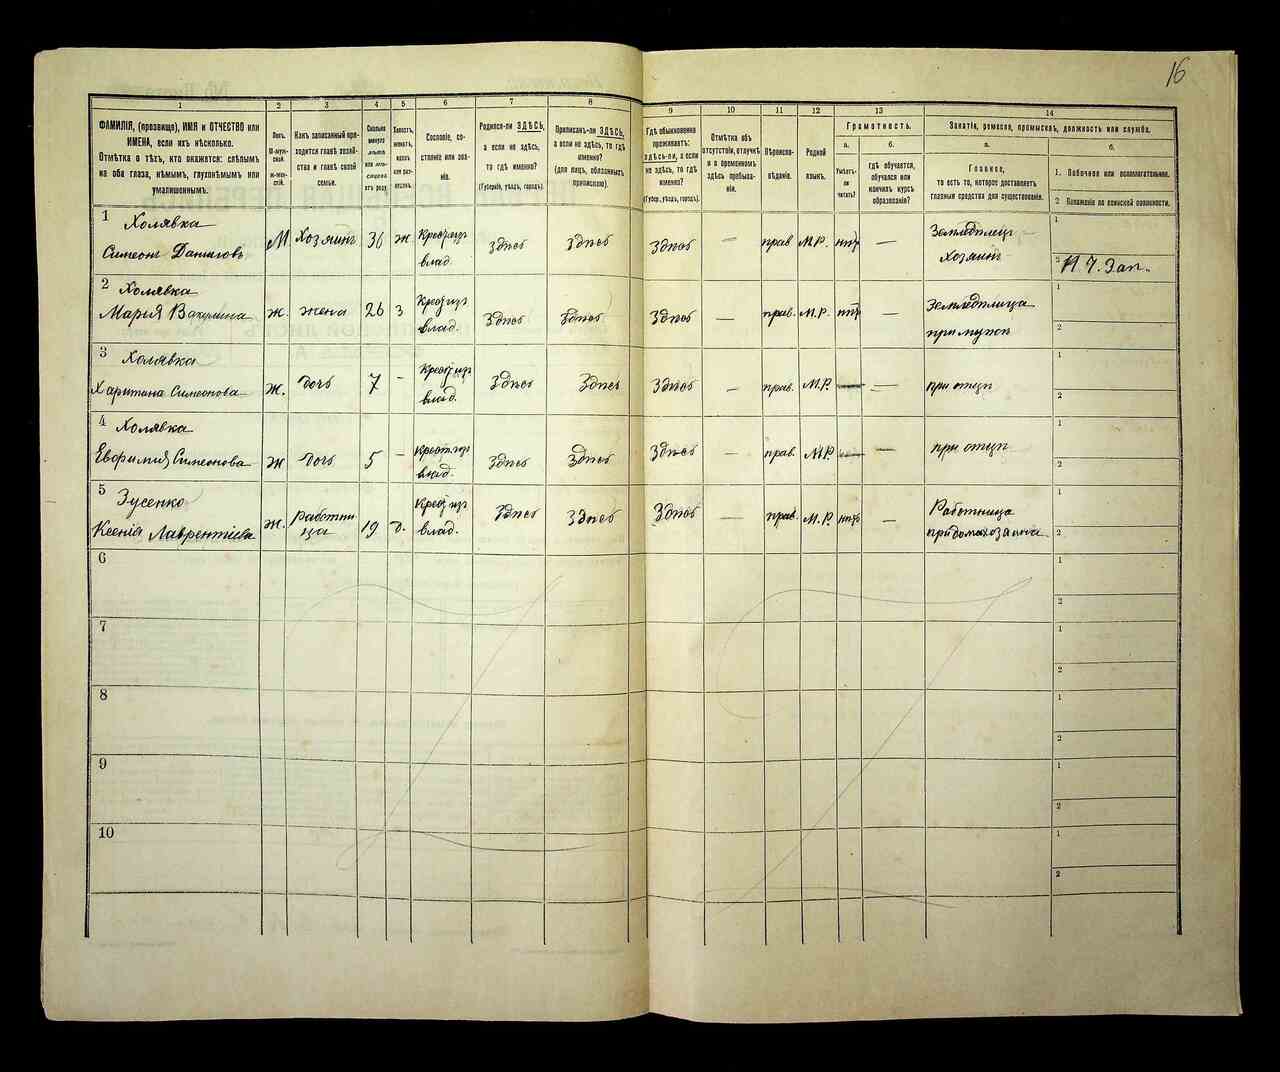 16
1 2 3 4 5 6 7 8 9 10 11 12 13 14
ФАМИЛІЯ, (прозвище), ИМЯ и ОТЧЕСТВО или
ИМЕНА, если ихъ нѣсколько.
Отмѣтка о тѣхъ, кто окажется: слѣпымъ
на оба глаза, нѣмымъ, глухонѣмымъ или
умалишеннымъ.
Полъ.
М-муж-
ской.
Ж-жен-
скій.
Какъ записанный при-
ходится главѣ хозяй-
ства и главѣ своей
семьи.
Сколько
минуло
лѣтъ
или мѣ-
сяцевъ
отъ роду.
Холостъ,
женатъ,
вдовъ
или раз-
веденъ.
Сословіе, со-
стояніе или зва-
ніе.
Родился-ли ЗДѢСЬ,
а если не здѣсь,
то гдѣ именно?
(Губернія, уѣздъ, городъ).
Приписанъ-ли ЗДѢСЬ,
а если не здѣсь, то гдѣ
именно?
(для лицъ, обязанныхъ
припискою).
Гдѣ обыкновенно
проживаетъ:
здѣсь-ли, а если
не здѣсь, то гдѣ
именно?
(Губерн., уѣздъ, городъ).
Отмѣтка объ
отсутствіи, отлучкѣ
и о временномъ
здѣсь пребыва-
ніи.
Вѣроиспо-
вѣданіе.
Родной
языкъ.
Грамотность.
а. б.
Умѣетъ-
ли
читать?
гдѣ обучается,
обучался или
кончилъ курсъ
образованія?
Занятіе, ремесло, промыселъ, должность или служба.
а. б.
Главное,
то есть то, которое доставляетъ
главныя средства для существованія.
1. Побочное или вспомогательное.
2 Положеніе по воинской повинности.
1 Холявка
Симеонъ Даниловъ М Хозяинъ 36 ж Крест. изъ влад. Здѣсь Здѣсь Здѣсь — прав М.Р. нѣтъ — Земледѣлецъ
хозяинъ
1
2 И Ч. Зап.
2 Холявка
Марія Вакулина ж. жена 26 з Крест изъ влад. Здѣсь Здѣсь Здѣсь — прав. М.Р. нѣтъ — Земледѣлица
при мужѣ
1
2
3 Холявка
Харитина Симеонова ж. дочь 7 - Крест изъ влад. Здѣсь Здѣсь Здѣсь — прав. М.Р. — при отцѣ
1
2
4 Холявка
Евфимія Симеонова ж дочь 5 - Крест. изъ влад. Здѣсь Здѣсь Здѣсь — прав. М.Р. — при отцѣ
1
2
5 Зусенко
Ксенія Лаврентіева ж. Работни
ца 19 д. Крест изъ влад. Здѣсь Здѣсь Здѣсь — прав. М.Р. нѣтъ — Работница
при домохозяина
1
2
6
1
2
7
1
2
8
1
2
9
1
2
10
1
2